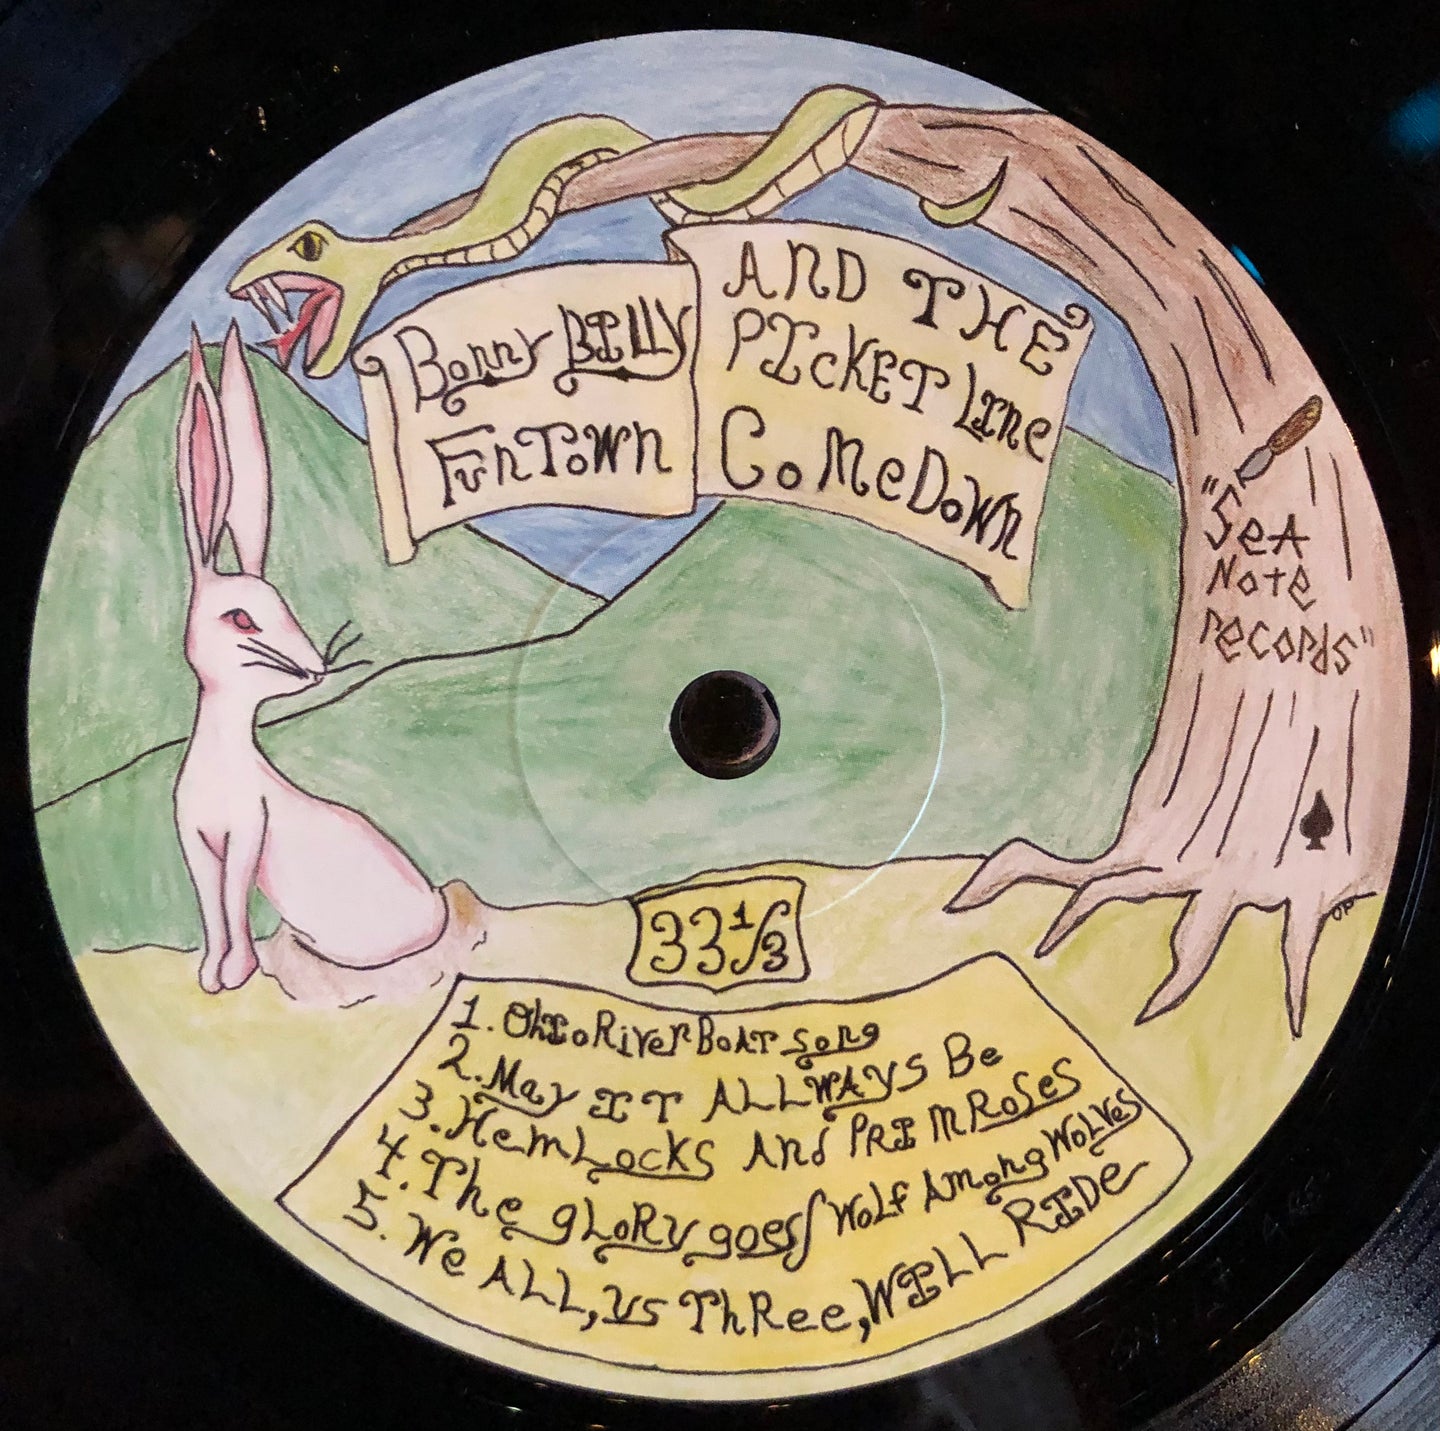 Bonny Billy
FunTown
AND THE
PIckET LIne
ComeDown
"SeA
Note
records"
33 1/3
1. OhIo River BoAT song
2. May IT ALLWAYS Be
3. HemLocks And PRImRoses
4. The gLoRy goes/Wolf Among Wolves
5. We ALL, us ThRee, WILL RIDe